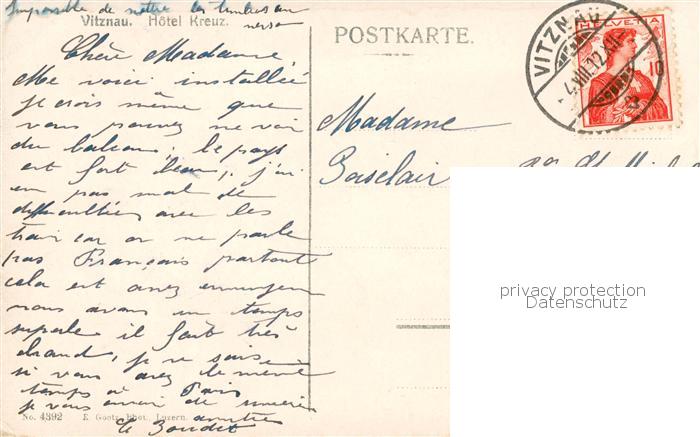 Impossible de mettre les timbres au
verso
Vitznau. Hôtel Kreuz.
Chère Madame
Me voici installée
je crois même que
vous pouvez me voir
du balcon; le pays
est fort beau, j'ai
eu pas mal de
difficultés avec les
train car on ne parle
pas Français partout
cela est assez ennuyeux
nous avons un temps
superbe il fait très
chaud, je ne sais
si vous avez le même
temps à Paris
je vous envoie de
amitiés
No. 4392 E. Goetz, Phot., Luzern.
POSTKARTE.
VITZNAU
HELVETIA
10
Madame
Boisclair
privacy protection
Datenschutz